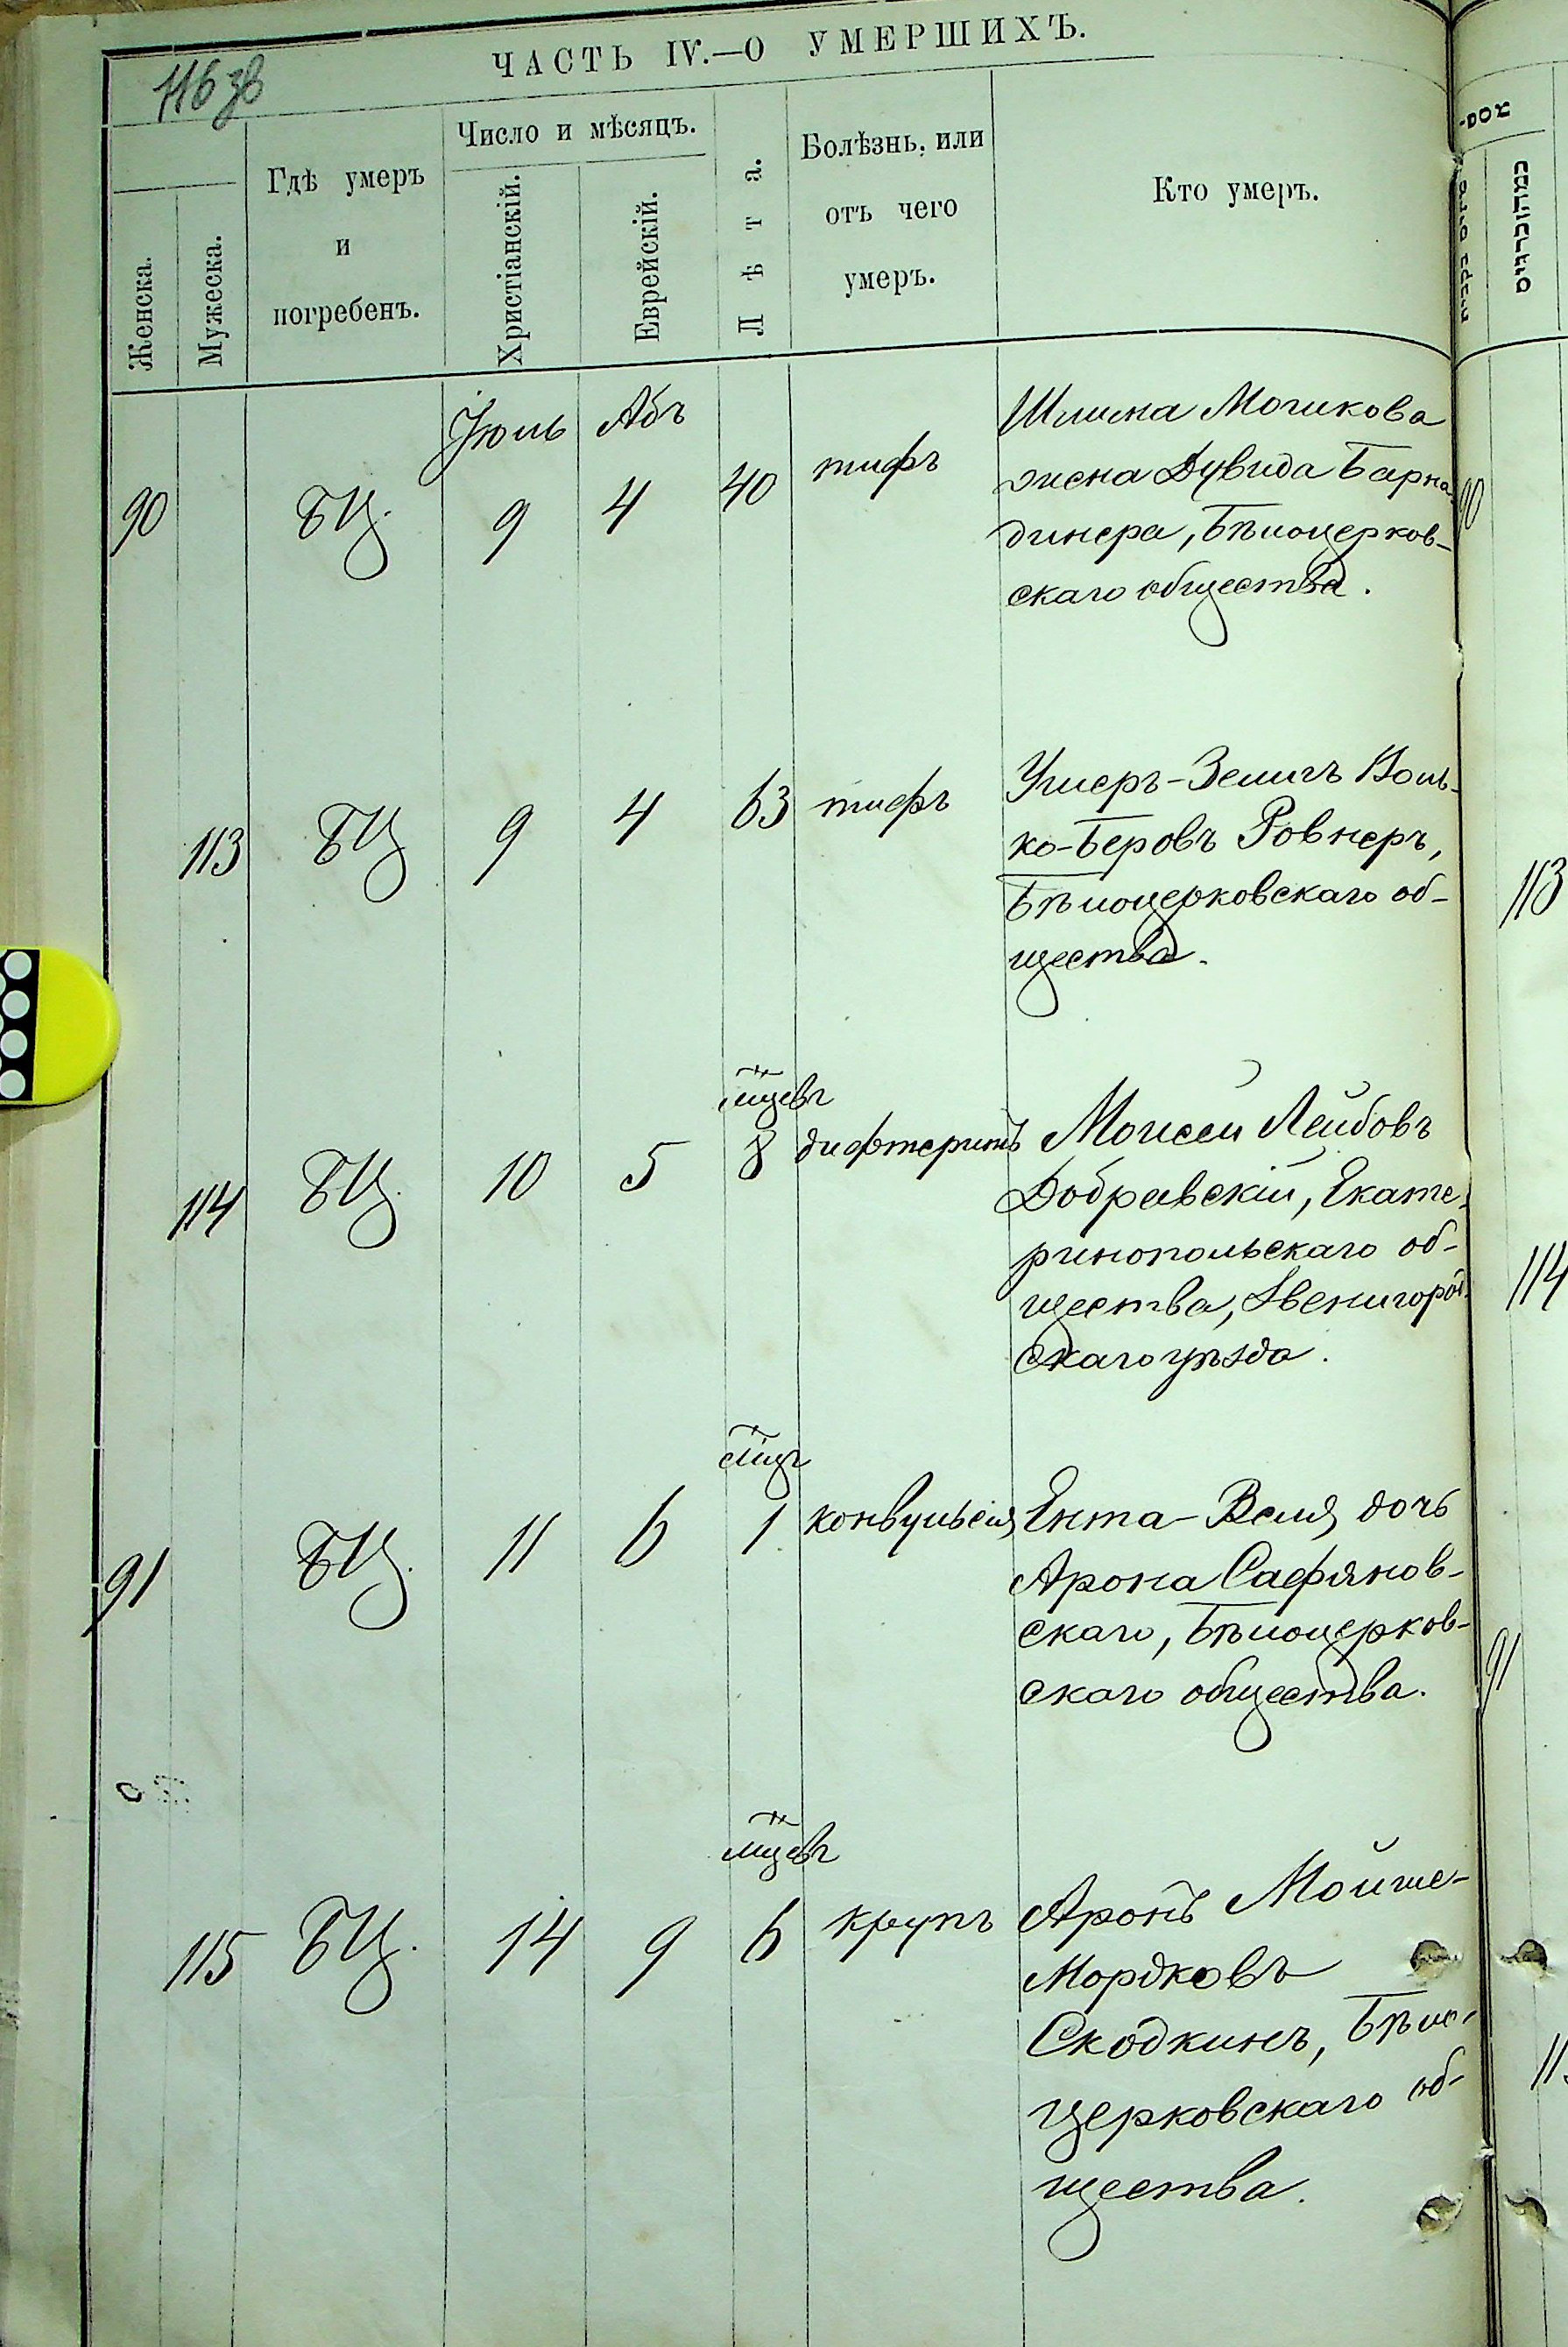 ЧАСТЬ IV.—О УМЕРШИХЪ.
116 зв
Женска.
Мужеска.
Гдѣ умеръ
и
погребенъ.
Число и мѣсяцъ.
Христіанскій.
Еврейскій.
Лѣта.
Болѣзнь, или
отъ чего
умеръ.
Кто умеръ.
Іюль Абъ
90 БЦ. 9 4 40 тифъ
Шлима Мошкова
жена Дувида Барна-
динера, Бѣлоцерков-
скаго общества.
113 БЦ 9 4 63 тифъ
Ушеръ-Зелигъ Воль-
ко-Беровъ Ровнеръ,
Бѣлоцерковскаго об-
щества.
мцевъ
114 БЦ. 10 5 8 дифтеритъ
Моисей Лейбовъ
Добравскій, Екате-
ринопольскаго об-
щества, Звенигород-
скаго уѣзда.
мцъ
91 БЦ. 11 6 1 конвульсія
Ента-Веля, дочь
Арона Сафянов-
скаго, Бѣлоцерков-
скаго общества.
мцевъ
115 БЦ. 14 9 6 крупъ
Аронъ Мойше-
Мордковъ
Скодкинъ, Бѣло-
церковскаго об-
щества.
90
113
114
91